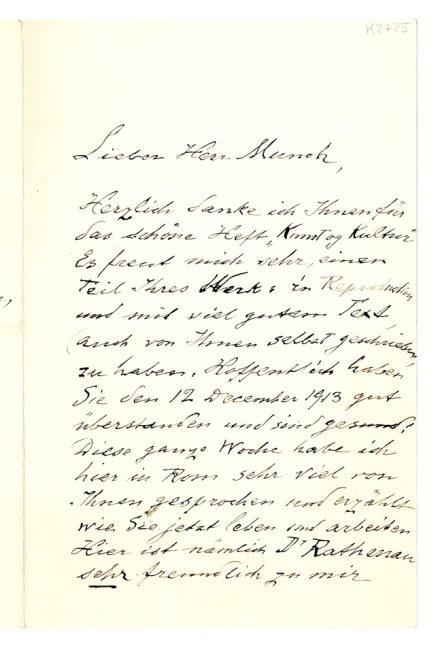 K2725
Lieber Herr Munch,
Herzlich danke ich Ihnen für
das schöne Heft „Kunst og Kultur"
Es freut mich sehr, einen
Teil Ihres Werkes in Reproduction
und mit viel gutem Text
(auch von Ihnen selbst geschrieben
zu haben. Hoffentlich haben
Sie den 12 December 1913 gut
überstanden und sind gesund?
Diese ganze Woche habe ich
hier in Rom sehr viel von
Ihnen gesprochen und erzählt
wie Sie jetzt leben und arbeiten
Hier ist nämlich Dr Rathenau
sehr freundlich zu mir